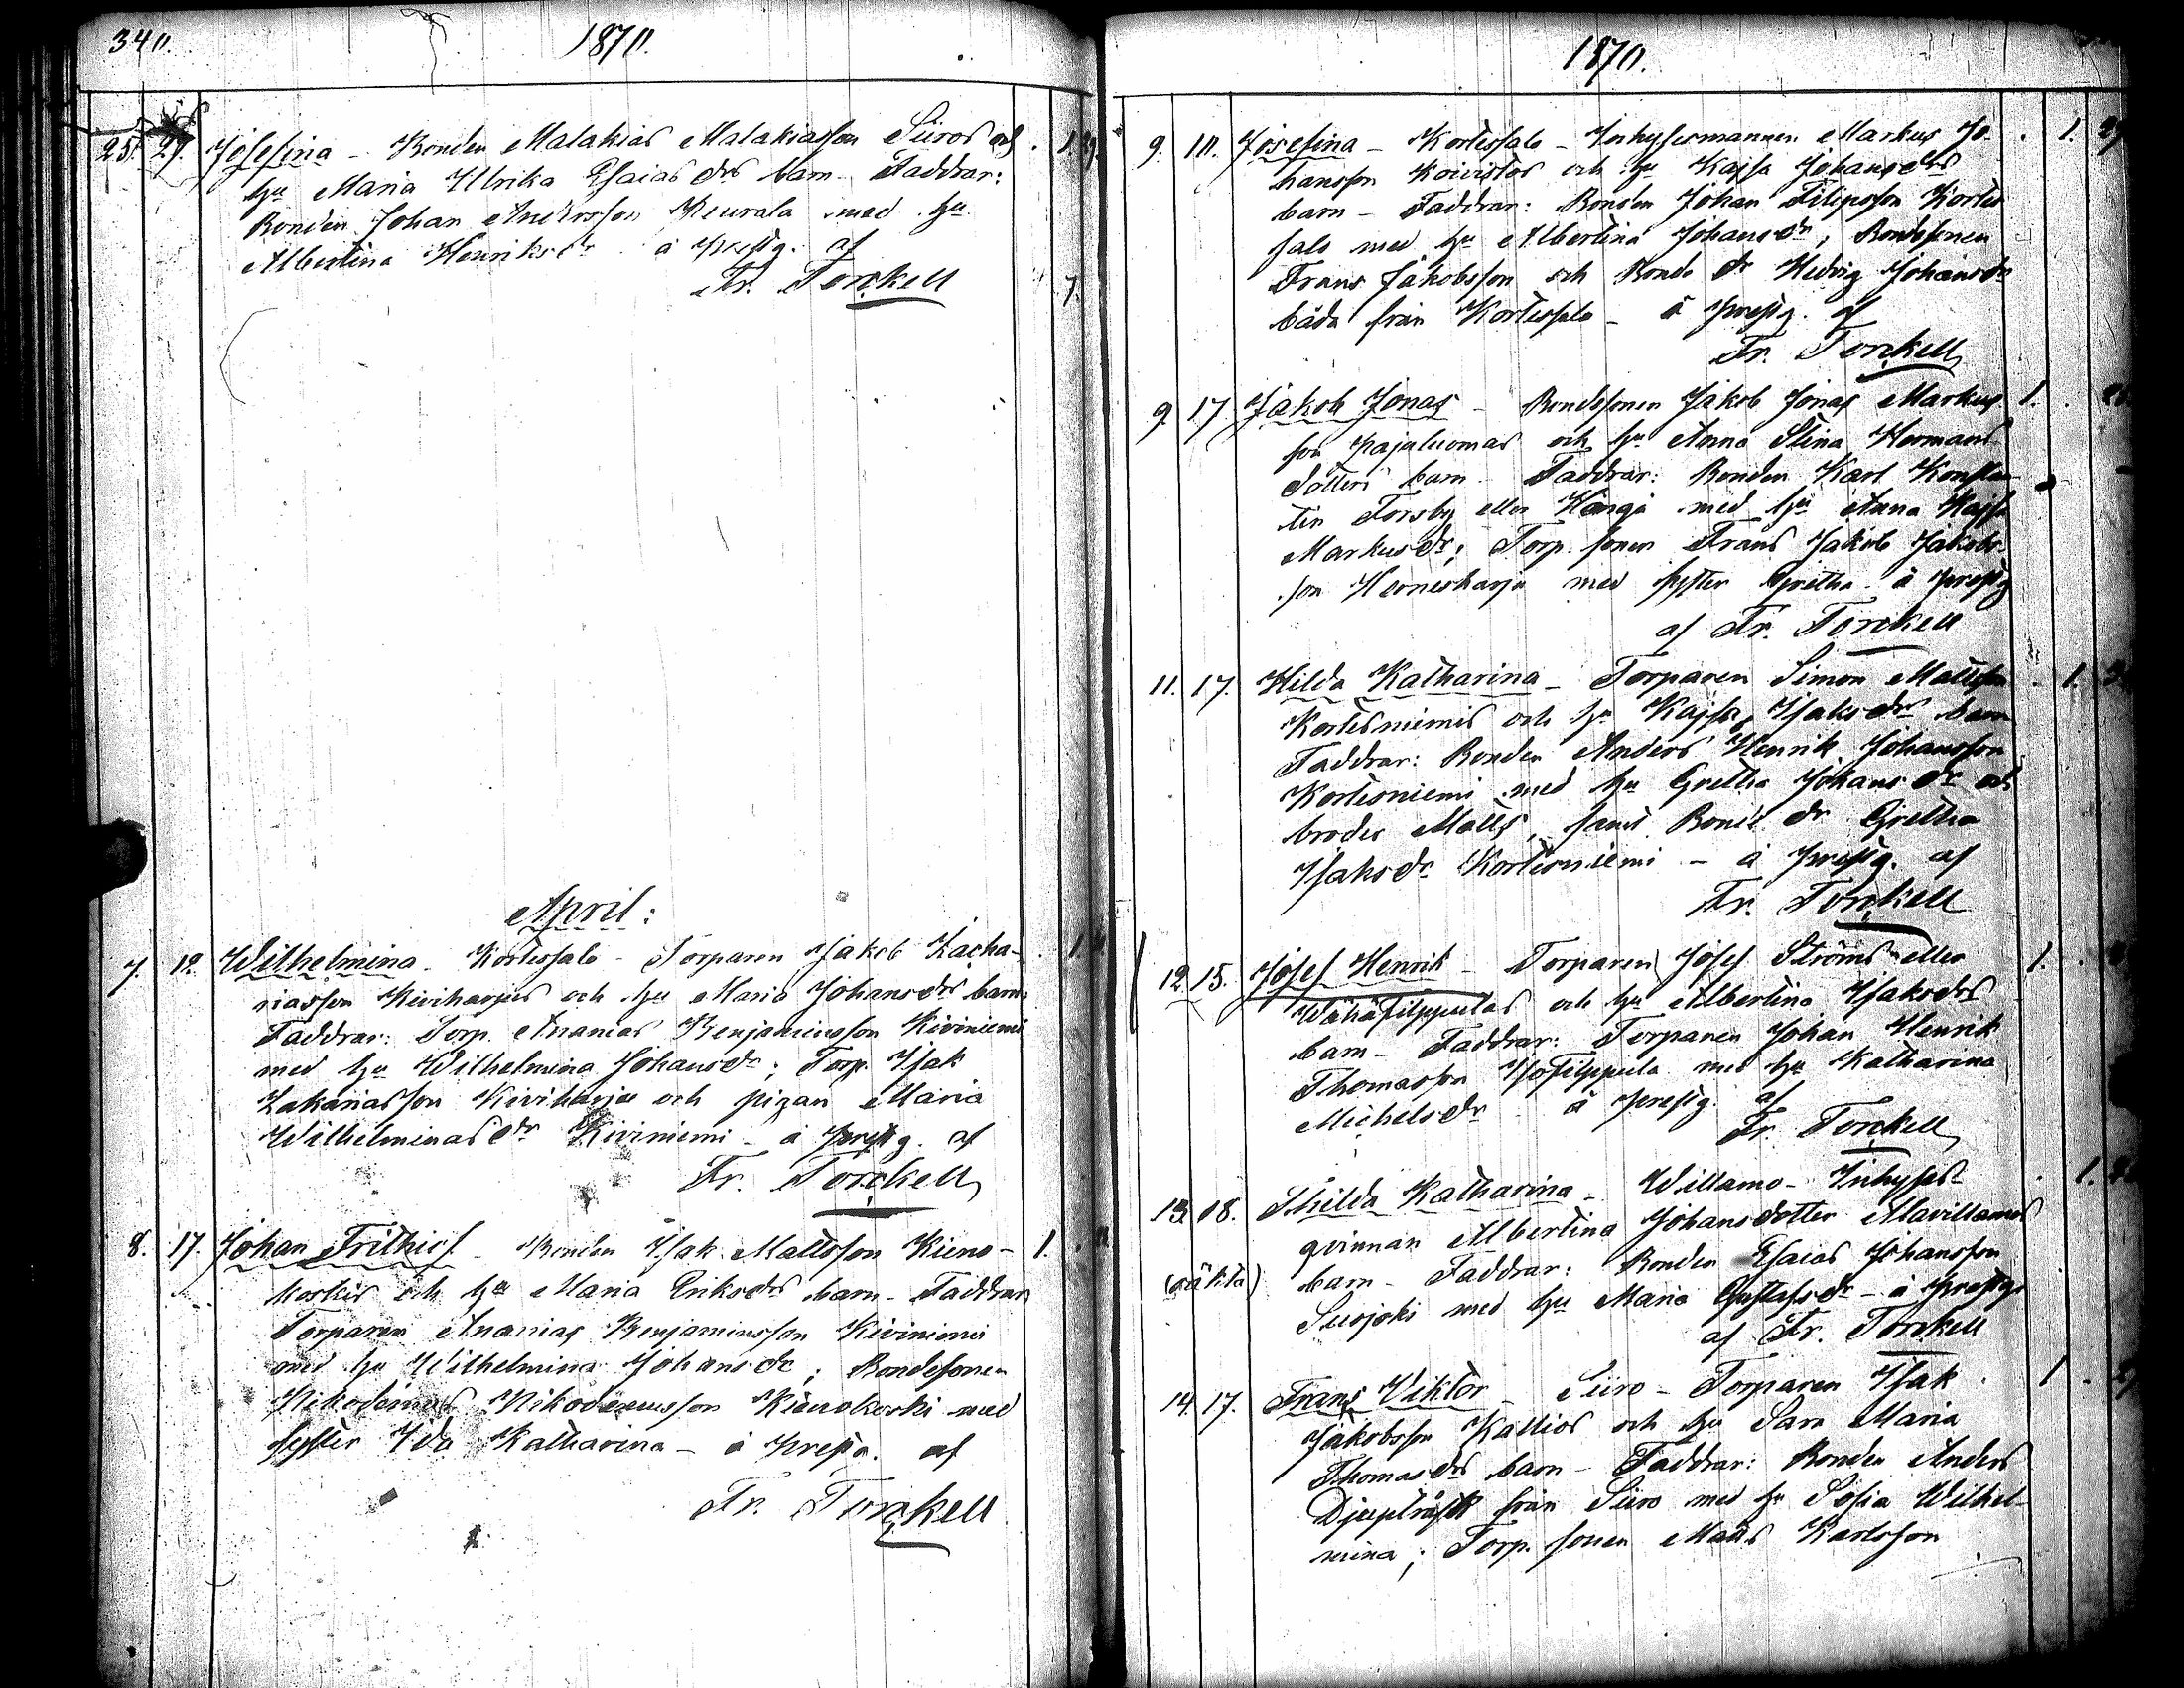 340.
1870.
25. 27. Josefina - Bonden Malakias Malakiasson Siiros och . 1.
hu Maria Ulrika Esaias drs barn - Faddrar:
Bonden Johan Andersson Keurala med hu
Albertina Henriks dr - å prestg. af
Fr. Torckell
April:
7. 12. Wilhelmina - Kortessalo - Torparen Jakob Zacha- . 1.
riasson Kiviharjus och hu Maria Johans drs barn
Faddrar: Torp. Ananias Benjaminsson Kiviniemi
med hu Wilhelmina Johans dr; Torp. Isak
Zakariasson Kiviharju och pigan Maria
Wilhelminas dr Kiviniemi - å prestg. af
Fr. Torckell
8. 17. Johan Frithiof - Bonden Isak Mattsson Kieno- 1. .
koskis och hu Maria Eriks drs barn - Faddrar
Torparen Ananias Benjaminsson Kiviniemi
med hu Wilhelmina Johans dr; Bondesonen
Nikodemus Nikodemusson Kienokoski med
syster Ida Katharina - å prestg. af
Fr. Torckell
1870.
9. 10. Josefina - Kortessalo - Inhysesmannen Markus Jo- . 1.
hansson Koivistos och hu Kajsa Johans drs
barn - Faddrar: Bonden Johan Filipsson Kortes
salo med hu Albertina Johans dr, Bondesonen
Frans Jakobsson och Bonde dr Hedvig Johans dr
båda från Kortessalo - å prestg. af
Fr. Torckell
9. 17. Jakob Jonas - Bondesonen Jakob Jonas Markus 1. .
son Pajuluomas och hu Anna Stina Hermans
dotters barn - Faddrar: Bonden Karl Konstan
tin Forsby eller Kanga med hu Anna Kajsa
Markus dr; Torp. sonen Frans Jakob Jakobs
son Hernesharju med syster Gretha - å prestg
af Fr. Torckell
11. 17. Hilda Katharina - Torparen Simon Mattsson . 1.
Kortesniemis och hu Kajsa Isaks drs barn
Faddrar: Bonden Anders Henrik Johansson
Kortesniemi med hu Gretha Johans dr och
broder Matts, samt Bond dr Gretha
Isaks dr Kortesniemi - å prestg. af
Fr. Torckell
12. 15. Josef Henrik - Torparen Josef Ströms eller 1. .
Wähäfilppulas och hu Albertina Isaks drs
barn - Faddrar: Torparen Johan Henrik
Thomasson Isofilppula med hu Katharina
Michels dr - å prestg. af
Fr. Torckell
13. 18. Thilda Katharina - Willamo - Inhyses- . 1.
qvinnan Albertina Johansdotter Alavillamos
(oäkta) barn - Faddrar: Bonden Esaias Johansson
Suojoki med hu Maria Gustafs dr - å prestg.
af Fr. Torckell
14. 17. Frans Viktor - Siiro - Torparen Isak 1 .
Jakobsson Kallios och hu Sara Maria
Thomas drs barn - Faddrar: Bonden Anders
Djupträsk från Siiro med hu Sofia Wilhel-
mina; Torp. sonen Matts Karlsson